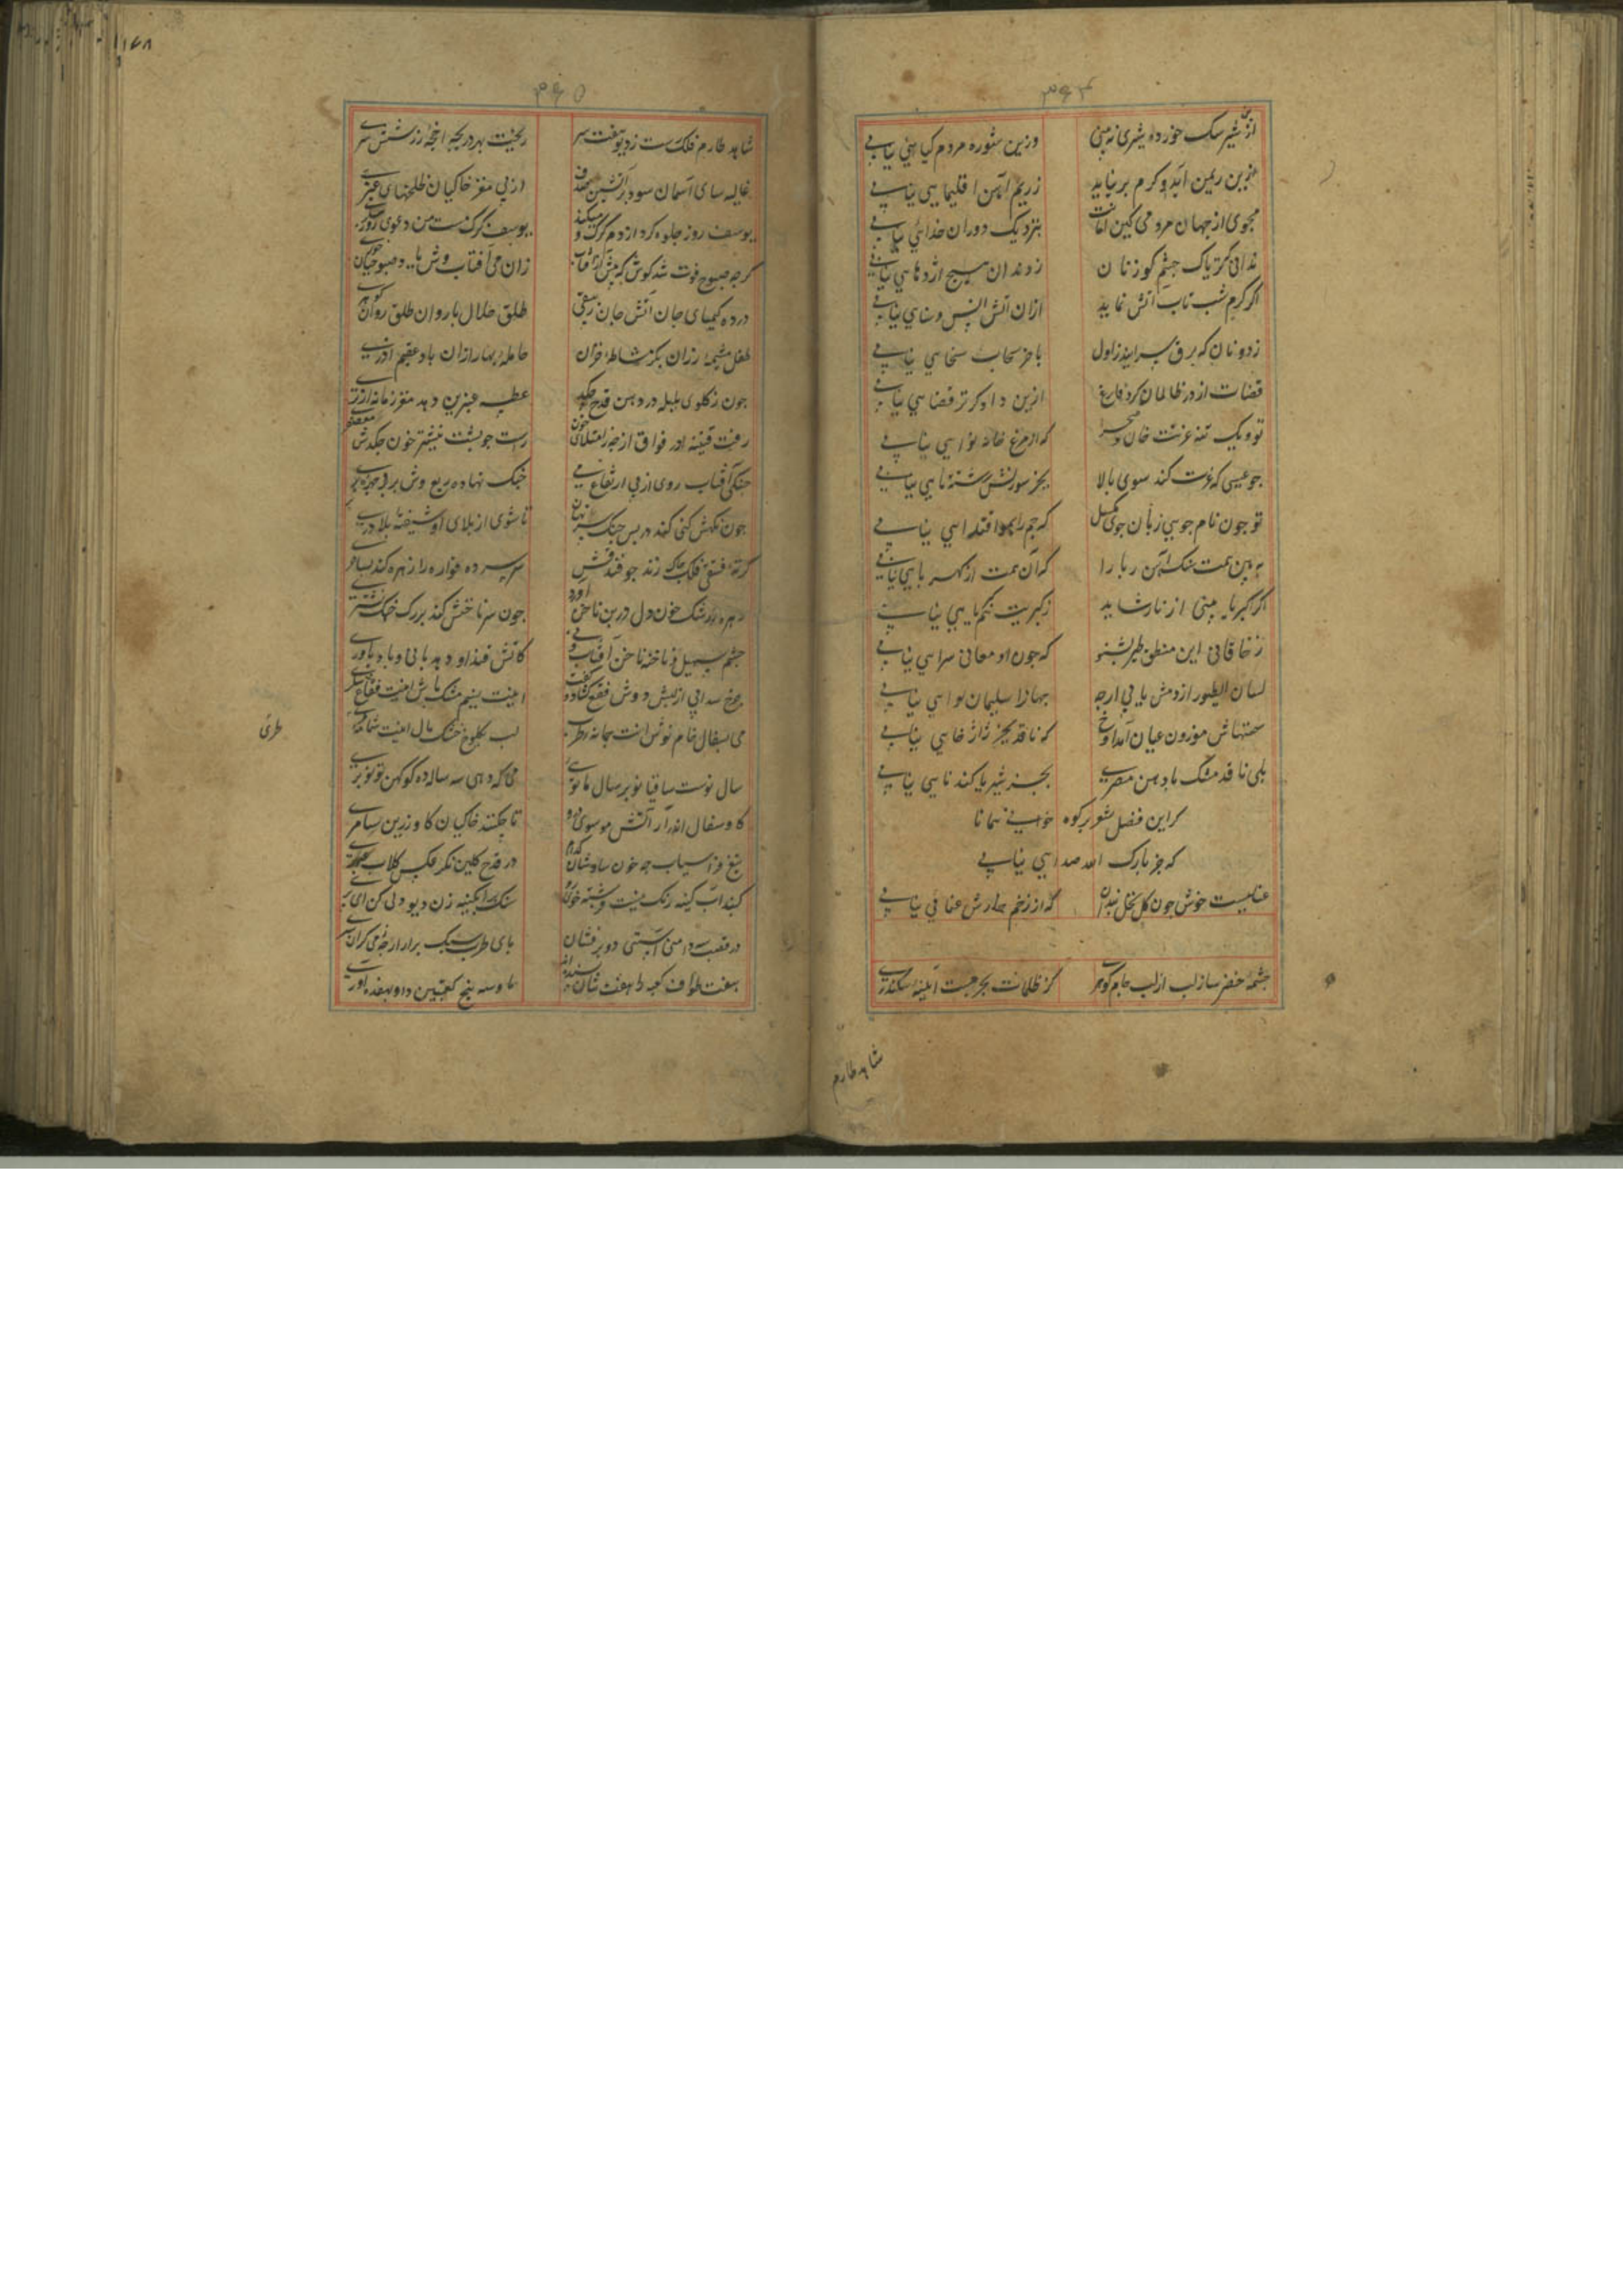 ۳۶۴
ازین شیر سک خورده شیری نه بینی
وزین شوره مردم کیا هئی نیابی
ازین ریمن آید و کرم بر نیاید
ز ریم آهن اقلیمایی نیابی
مجوی از جهان مردمی کین امانت
بنزدیک دوران خدائی نیابی
ندانی کز پاک چشم کوزنان
ز دندان هیچ اژدهایی نیابی
اکر کرم شب تاب آتش نماید
ازان آتش انس و سنایی نیابی
ز دونان که برق سرابند ز اول
باخر سحاب سخایی نیابی
قضات از در ظالمان کرد فارغ
ازین دادکرتر قضایی نیابی
تو و یک تنه غربت خان و صحرا
که از مرغ خانه نوایی نیابی
جو عیسی که غربت کند سوی بالا
بجز سوزنش رشته تایی نیابی
تو جون نام جویی زبان جوی بکسل
که جم را بمور اقتدایی نیابی
به بین همت سنک آهن ربا را
که آن همت از کهربایی نیابی
اکر کبریا بینی از نار شاید
ز کبریت هم کیمیایی نیابی
ز خاقانی این منطق طیر بشنو
که جون او معانی سرایی نیابی
لسان الطیور از دمش یابی ارجه
جهانرا سلیمان لوایی نیابی
سخنهاش موزون عیان آمد آوخ
که ناقد بجز ژاژ خایی نیابی
بلی ناقد مشک یا دهن مصری
بجز سیر یا کندنایی نیابی
کر این فصل شعر بر کوه خوانی همانا
که جز بارک الله صدایی نیابی
عنابیست خوش جون کل نخل بندان
که از زخم خارش عنائی نیابی
جشمه خضر ساز لب از لب جام کوهری
کز ظلمات بحر جست آینه سکندری
شاهد طارم
۳۶۵
۱۶۸
شاهد طارم فلک رست ز دیو هفت سر
ریخت بهر دریچه اقجه زر شش سری
غالیه سای آسمان سود بر آتشین صدف
از پی مغز خاکیان لخلخهای عنبری
یوسف روز جلوه کرد از دم کرک و میکند
یوسف کرک مست من دعوی روز پیکری
کرجه صبوح فوت شد کوش که پیش از آفتاب
زان می آفتاب وش یاد صبوحیان خوری
درده کیمیای جان آتش جام زیبقی
طلق حلال با روان طلق روان کوهری
طفل مشیمه رزان بکر مشاطه خزان
حامله بهار ازان باد عقیم آذری
جون ز کلوی بلبله در دهن قدح جکد
عطسه عنبرین دهد مغز زمانه از تری
رفت قنینه در فواق از جه ز امتلای خون
راست جو پشت نیشتر خون جکدش معصفری
جنکی آفتاب روی از پی ارتفاع می
جنک نهاده ربع وش بر بر و جهره بر بری
جون نکهش کنی کند در پس جنک سر نهان
تا شوی از بلای او شیفته بلادری
کرته فستقی فلک جاک زند جو فندقش
سر بسر ده فواره را زهره کند بساحری
جهره ز رشک خون دل در بن ناخن آورد
جون سر ناخنش کند بر رک جنک نشتری
جشم سهیل و ناخنه ناخن آفتاب و نی
کاتش و قند او دهد با نی و باد یاوری
جرخ سدابی از لبش دوش فقع کشاد و کفت
اینت نسیم مشک پاش اینت فقاع شکری
می بسفال خام نوش اینت جمانه طرب
لب بکلوخ خشک مال اینت شمامه طری
سال نوست ساقیا نوبر سال ما توئی
می که دهی سه ساله ده کو کهن و تو نوبری
کاو سفالی اندر آر آتش موسوی درو
تا جکنند خاکیان کاو زرین سامری
تیغ فراسیاب جه خون سیاوشان کدام
در قدح کلین نکر عکس کلاب عبهری
کنبد آبکینه رنک نیست فرشته خوی
سنک بر آبکینه زن دیو دلی کن ای پری
در قصب سه دامنی آستئی دو بر فشان
پای طرب سبک برار ارجه ز می کران سری
هفت طواف کعبه را هفت تنان بسنده اند
ما و سه پنج کعبتین داو بهفده آوری
طری